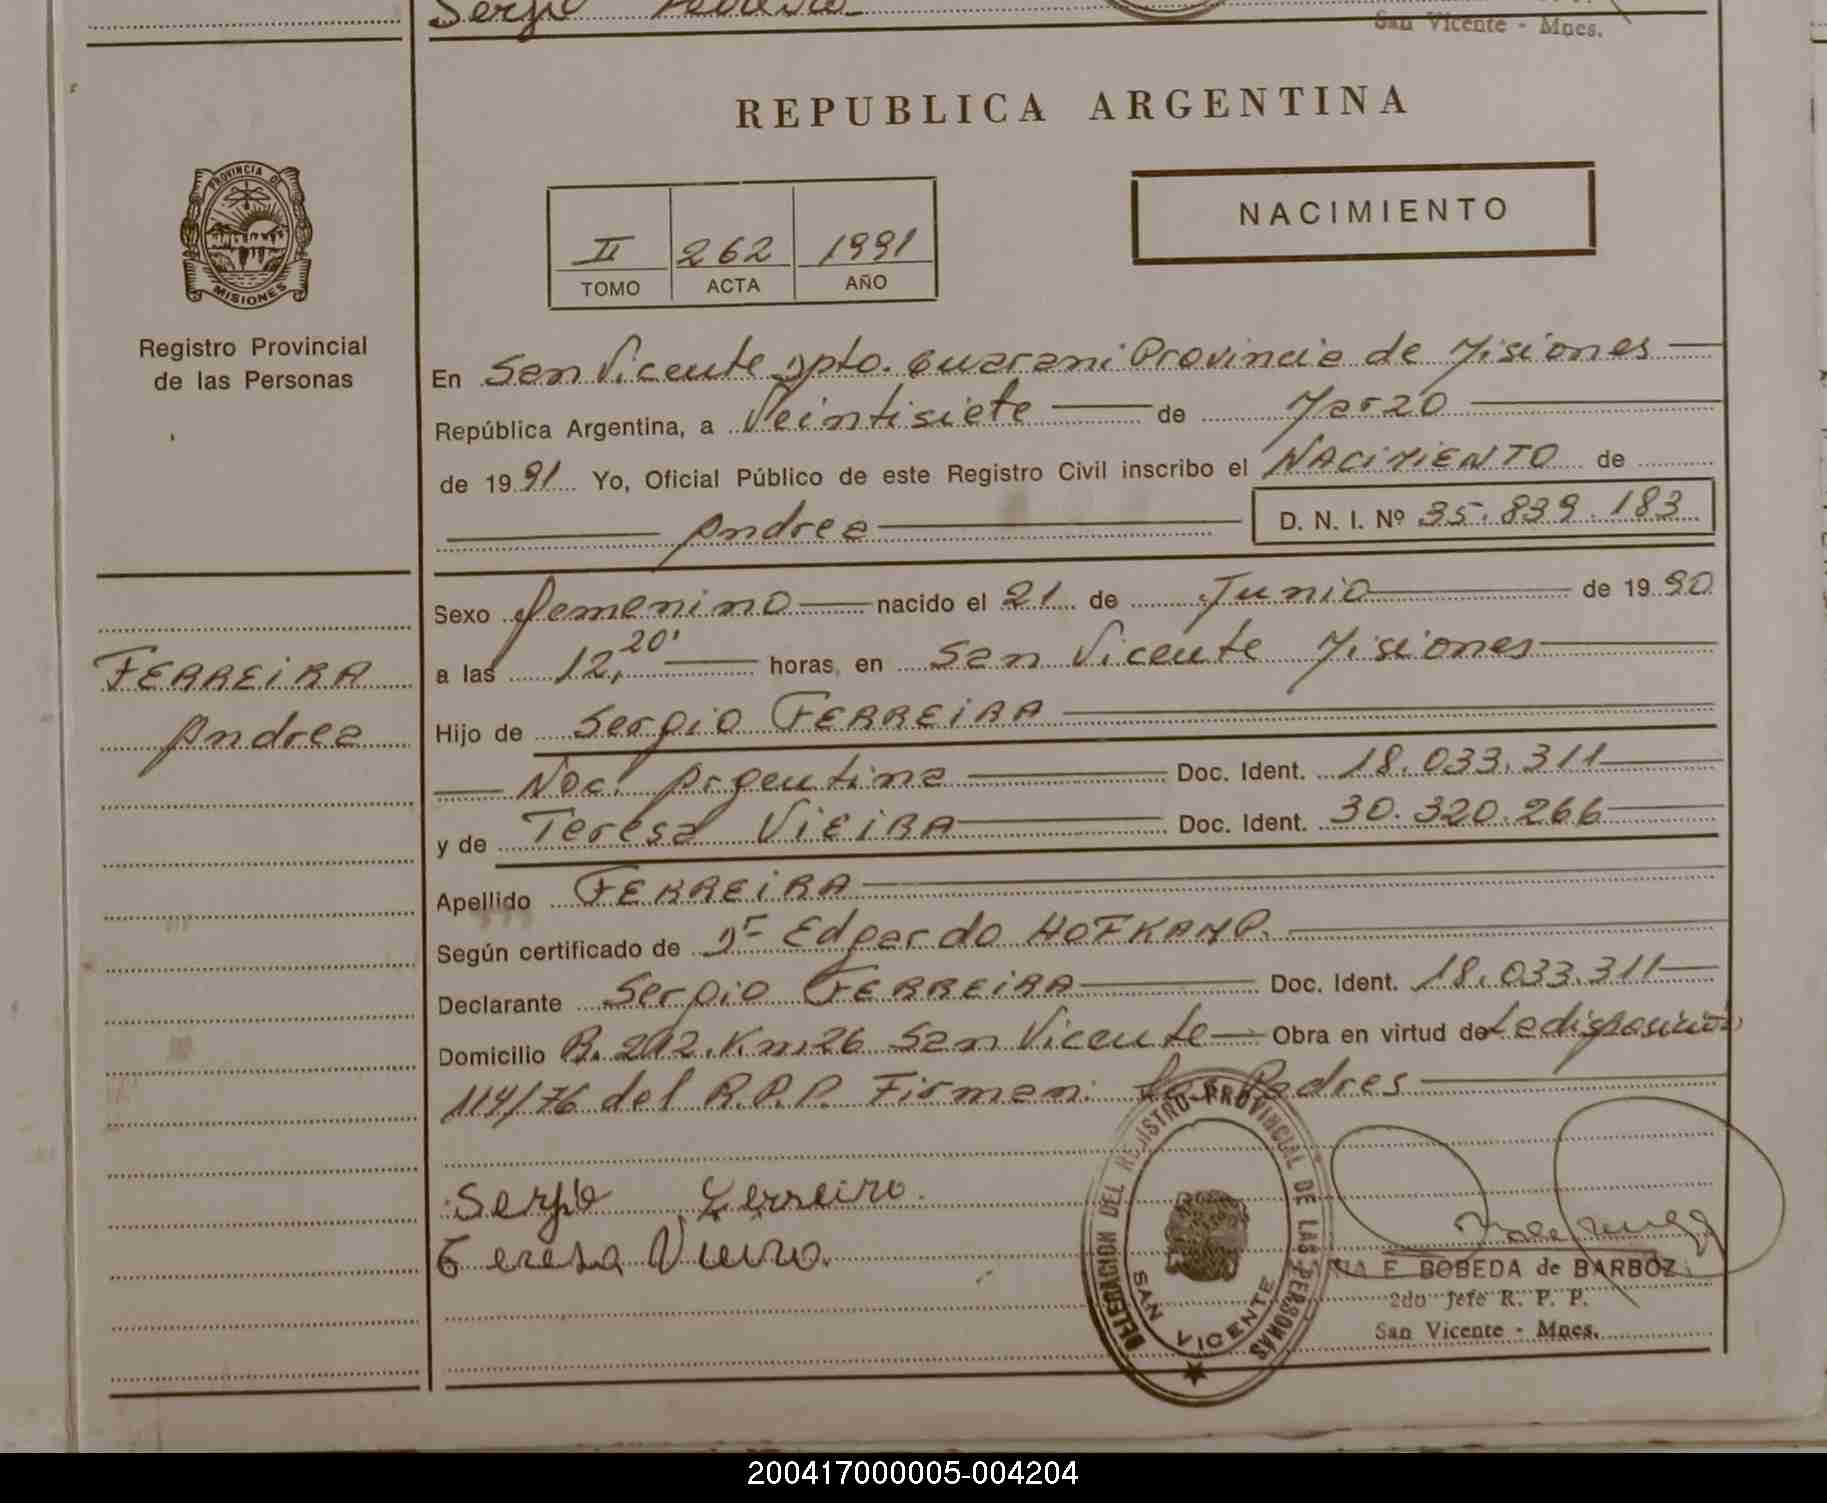 Sergio
San Vicente - Mnes.
REPUBLICA ARGENTINA
PROVINCIA DE
MISIONES
Registro Provincial
de las Personas
II 262 1991
TOMO ACTA AÑO
NACIMIENTO
En San Vicente Dpto. Guarani Provincia de Misiones
República Argentina, a Veintisiete de Marzo
de 1991 Yo, Oficial Público de este Registro Civil inscribo el NACIMIENTO de
Andrea D. N. I. Nº 35.839.183
Sexo femenino nacido el 21 de Junio de 1990
a las 12,20' horas, en San Vicente Misiones
FERREIRA
Andrea
Hijo de Sergio FERREIRA
Nac. Argentina Doc. Ident. 18.033.311
y de Teresa VIEIRA Doc. Ident. 30.320.266
Apellido FERREIRA
Según certificado de Dr Edgardo HOFKAMP.
Declarante Sergio FERREIRA Doc. Ident. 18.033.311
Domicilio R. 212. Km 26 San Vicente Obra en virtud de La disposición
114/76 del R.P.P. Firman: Los Padres
Sergio Ferreira.
Teresa Vieira.
DELEGACION DEL REJISTRO PROVINCIAL DE LAS PERSONAS
SAN VICENTE
E. BOBEDA de BARBOZ
2do Jefe R. P. P.
San Vicente - Mnes.
200417000005-004204